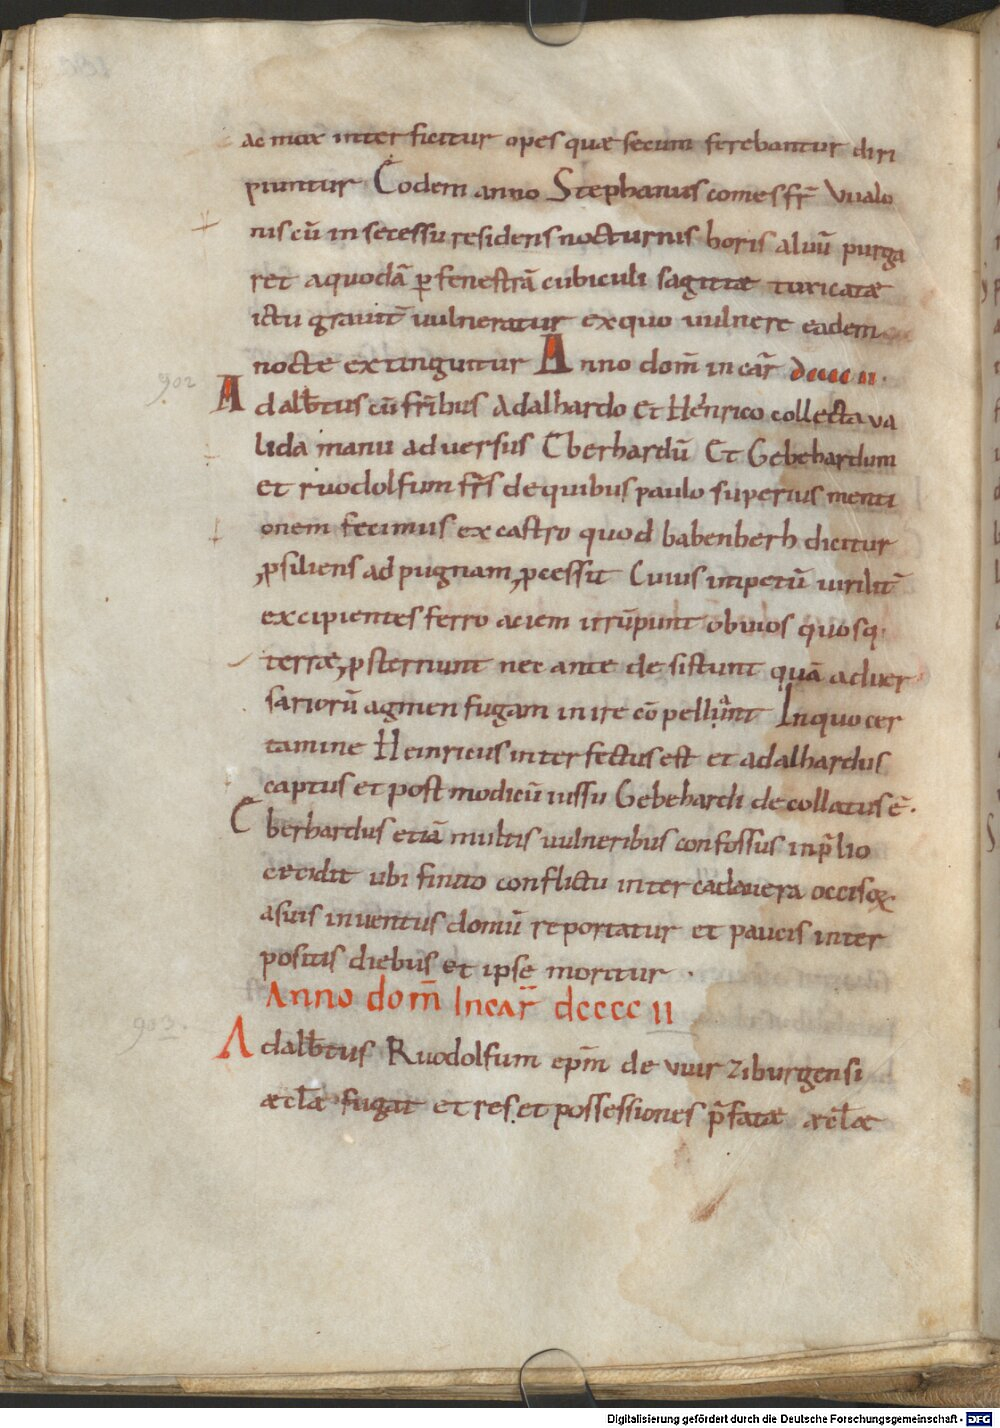 ac mox interficitur opes quae secum ferebantur diri
piuntur Eodem anno Stephanus comes fr̄ Vualo
nis cū in secessu residens nocturnis horis aluū purga
ret a quodā ꝑ fenestrā cubiculi sagittae toxicatae
ictu grauit̄ uulneratur ex quo uulnere eadem
nocte extinguitur Anno dom̄ incar̄ dcccc ii.
902
Adalb̄tus cū fr̄ibus Adalhardo et Heinrico collecta va
lida manu aduersus Eberhardū Et Gebehardum
et ruodolfum fr̄s de quibus paulo superius menti
onem fecimus ex castro quod babenberh dicitur
ꝓsiliens ad pugnam ꝓcessit Cuius impetū uirilit̄
excipientes ferro aciem irrūpunt obuios quosq;
terrae ꝓsternunt nec ante desistunt quā aduer
sariorū agmen fugam inire cōpellunt In quo cer
tamine Heinricus interfectus est et adalhardus
captus et post modicū iussu Gebehardi decollatus ē.
Eberhardus etiā multis uulneribus confossus in p̄lio
cecidit ubi finito conflictu inter cadauera occisoꝝ.
a suis inuentus domū reportatur et paucis inter
positis diebus et ipse moritur .
Anno dom̄ Incar̄ dcccc ii
903.
Adalb̄tus Ruodolfum ep̄m de vuirziburgensi
aecl̄a fugat et res. et possessiones p̄fatae aecl̄ae
Digitalisierung gefördert durch die Deutsche Forschungsgemeinschaft - DFG